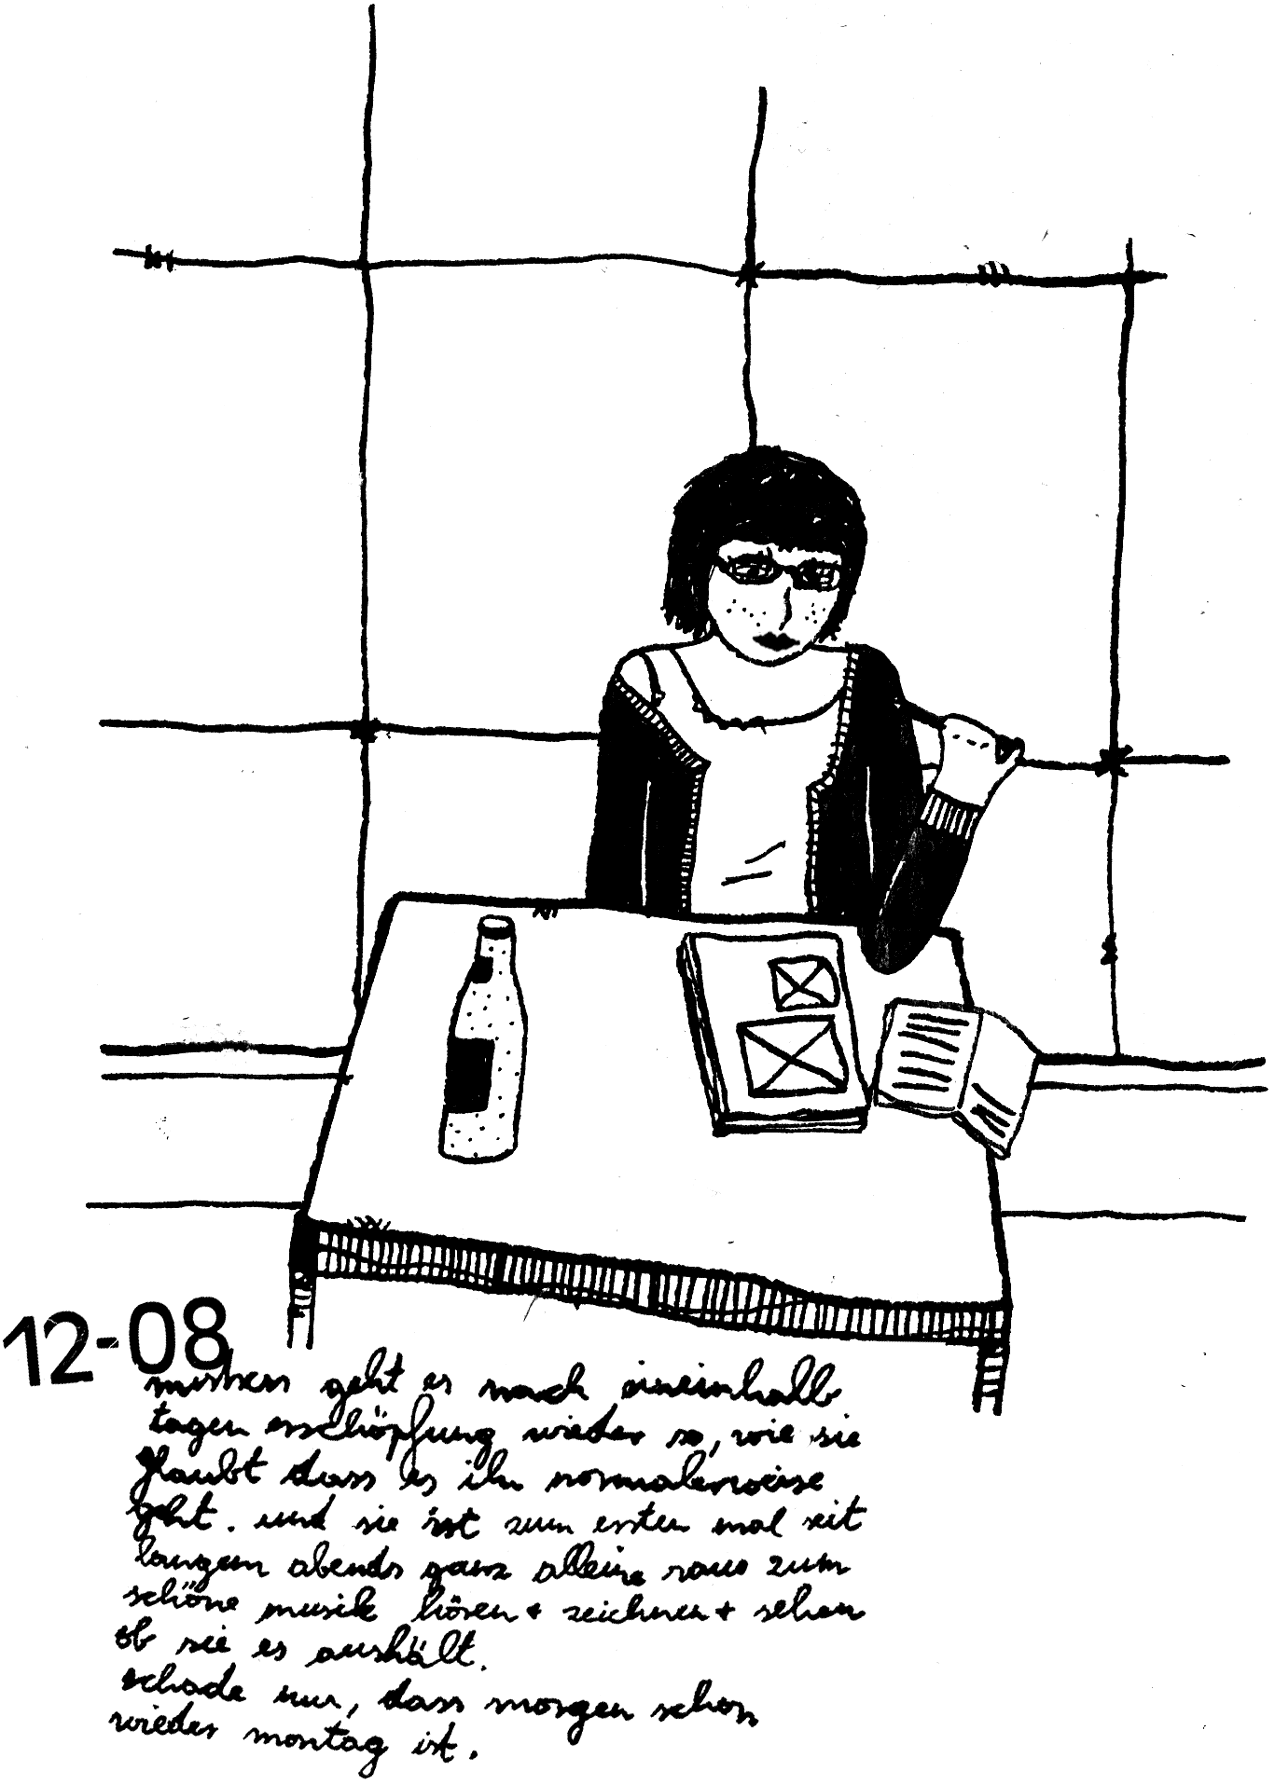 12-08
geht es nach eineinhalb
tagen erschöpfung wieder so, wie sie
glaubt dass es ihr normalerweise
geht. und sie ist zum ersten mal seit
langem abends ganz alleine raus zum
schöne musik hören + zeichnen + sehen
ob sie es aushält.
schade nur, dass morgen schon
wieder montag ist.